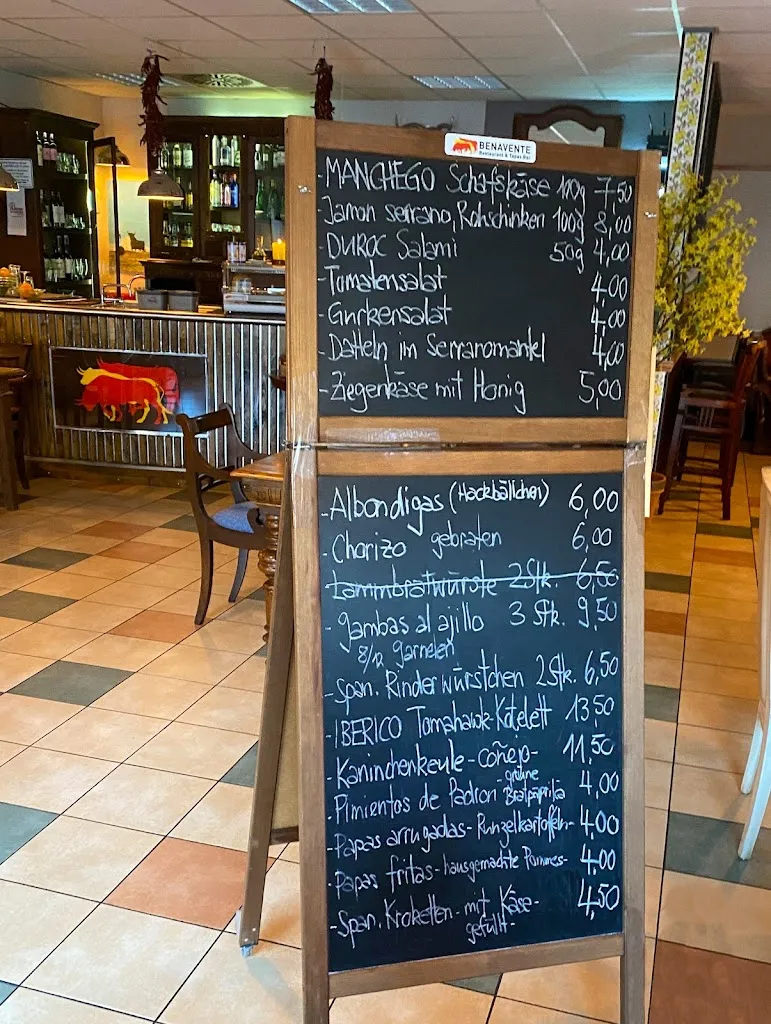 BENAVENTE
Restaurant & Tapas Bar
- MANCHEGO Schafskäse 100g 7,50
- Jamon serrano, Rohschinken 100g 8,00
- DUROC Salami 50g 4,00
- Tomatensalat 4,00
- Gurkensalat 4,00
- Datteln im Serranomantel 4,00
- Ziegenkäse mit Honig 5,00
- Albondigas (Hackbällchen) 6,00
- Chorizo gebraten 6,00
- Lammbratwürste 2 Stk. 6,50
- gambas al ajillo 3 Stk. 9,50
8/12 garnelen
- Span. Rinderwürstchen 2 Stk. 6,50
- IBERICO Tomahawk-Kotelett 13,50
- Kaninchenkeule - coñejo - 11,50
- Pimientos de Padron grüne Bratpaprika 4,00
- Papas arrugadas - Runzelkartoffeln - 4,00
- Papas fritas - hausgemachte Pommes - 4,00
- Span. Kroketten - mit Käse - 4,50
gefüllt -